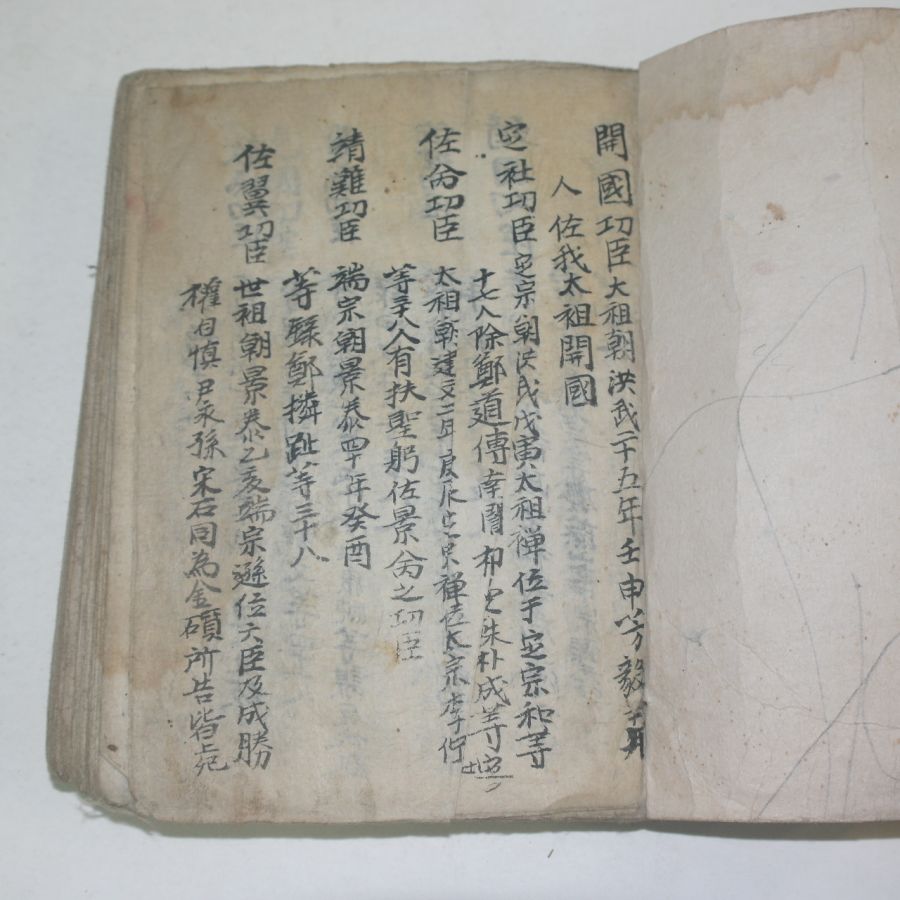 開國功臣 大祖朝洪武二十五年壬申芳毅等
人佐我太祖開國
定社功臣 定宗朝洪武戊寅太祖禅位于定宗和等
十七人除鄭道傳南誾 朱朴成等
佐命功臣 太祖朝建文二年庚辰定宗禅位太宗李佇
等三十八人有扶聖躬佐景命之功臣
靖難功臣 端宗朝景泰四十年癸酉
等録鄭摛趾等三十八
佐翼功臣 世祖朝景泰乙亥端宗遜位六臣及成勝
權自慎尹永孫宋石同為金礩所告皆死